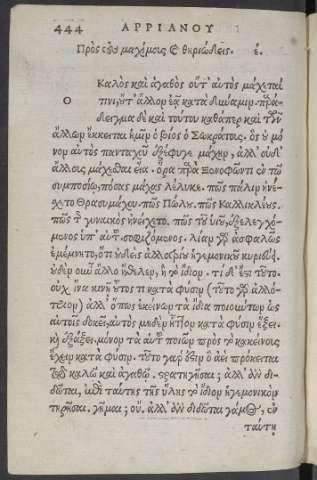 444 ΑΡΡΙΑΝΟΥ
Πρὸς τοὺς μαχίμους καὶ θηριώδεις. ε.
Ο Καλὸς καὶ ἀγαθὸς οὔτ' αὐτὸς μάχεταί
τινι, οὔτ' ἄλλον ἐᾷ κατὰ δύναμιν. παρά-
δειγμα δὲ καὶ τούτου καθάπερ καὶ τῶν
ἄλλων ἔκκειται ἡμῖν ὁ βίος ὁ Σωκράτους. ὃς οὐ μό
νον αὐτὸς πανταχοῦ ἐξέφυγε μάχην, ἀλλ' οὐδ'
ἄλλους μάχεσθαι εἴα. ὅρα παρὰ Ξενοφῶντι ἐν τῷ
συμποσίῳ, πόσας μάχας λέλυκε. πῶς πάλιν ἠνέ-
χετο Θρασυμάχου. πῶς Πώλου. πῶς Καλλικλέους.
πῶς τῆς γυναικὸς ἠνείχετο. πῶς τοῦ υἱοῦ, ἐξελεγχό-
μενος ὑπ' αὐτοῦ. σοφιζόμενος. λίαν γὰρ ἀσφαλῶς
ἐμέμνητο, ὅτι οὐδεὶς ἀλλοτρίου ἡγεμονικοῦ κυριεύει.
οὐδὲν οὖν ἄλλο ἤθελεν, ἢ τὸ ἴδιον. τί δ' ἐστι τοῦτο.
οὐχ ἵνα κινῇ οὗτος τι κατὰ φύσιν (τοῦτο γὰρ ἀλλό-
τριον) ἀλλ' ὅπως ἐκείνων τὰ ἴδια ποιούντων ὡς
αὐτοῖς δοκεῖ, αὐτὸς μηδὲν ἧττον κατὰ φύσιν ἕξει
καὶ διέξει, μόνον τὰ αὑτοῦ ποιῶν πρὸς τὸ κἀκείνους
ἔχειν κατὰ φύσιν. τοῦτο γάρ ἐστιν ὃ ἀεὶ πρόκειται
τῷ καλῷ καὶ ἀγαθῷ. στρατηγῆσαι; ἀλλ' ἂν δι-
δῶται, ἐπὶ ταύτης τῆς ὕλης τὸ ἴδιον ἡγεμονικὸν
τηρῆσαι. γῆμαι; οὔ. ἀλλ' ἂν διδῶται γάμος, ἐν
ταύτῃ